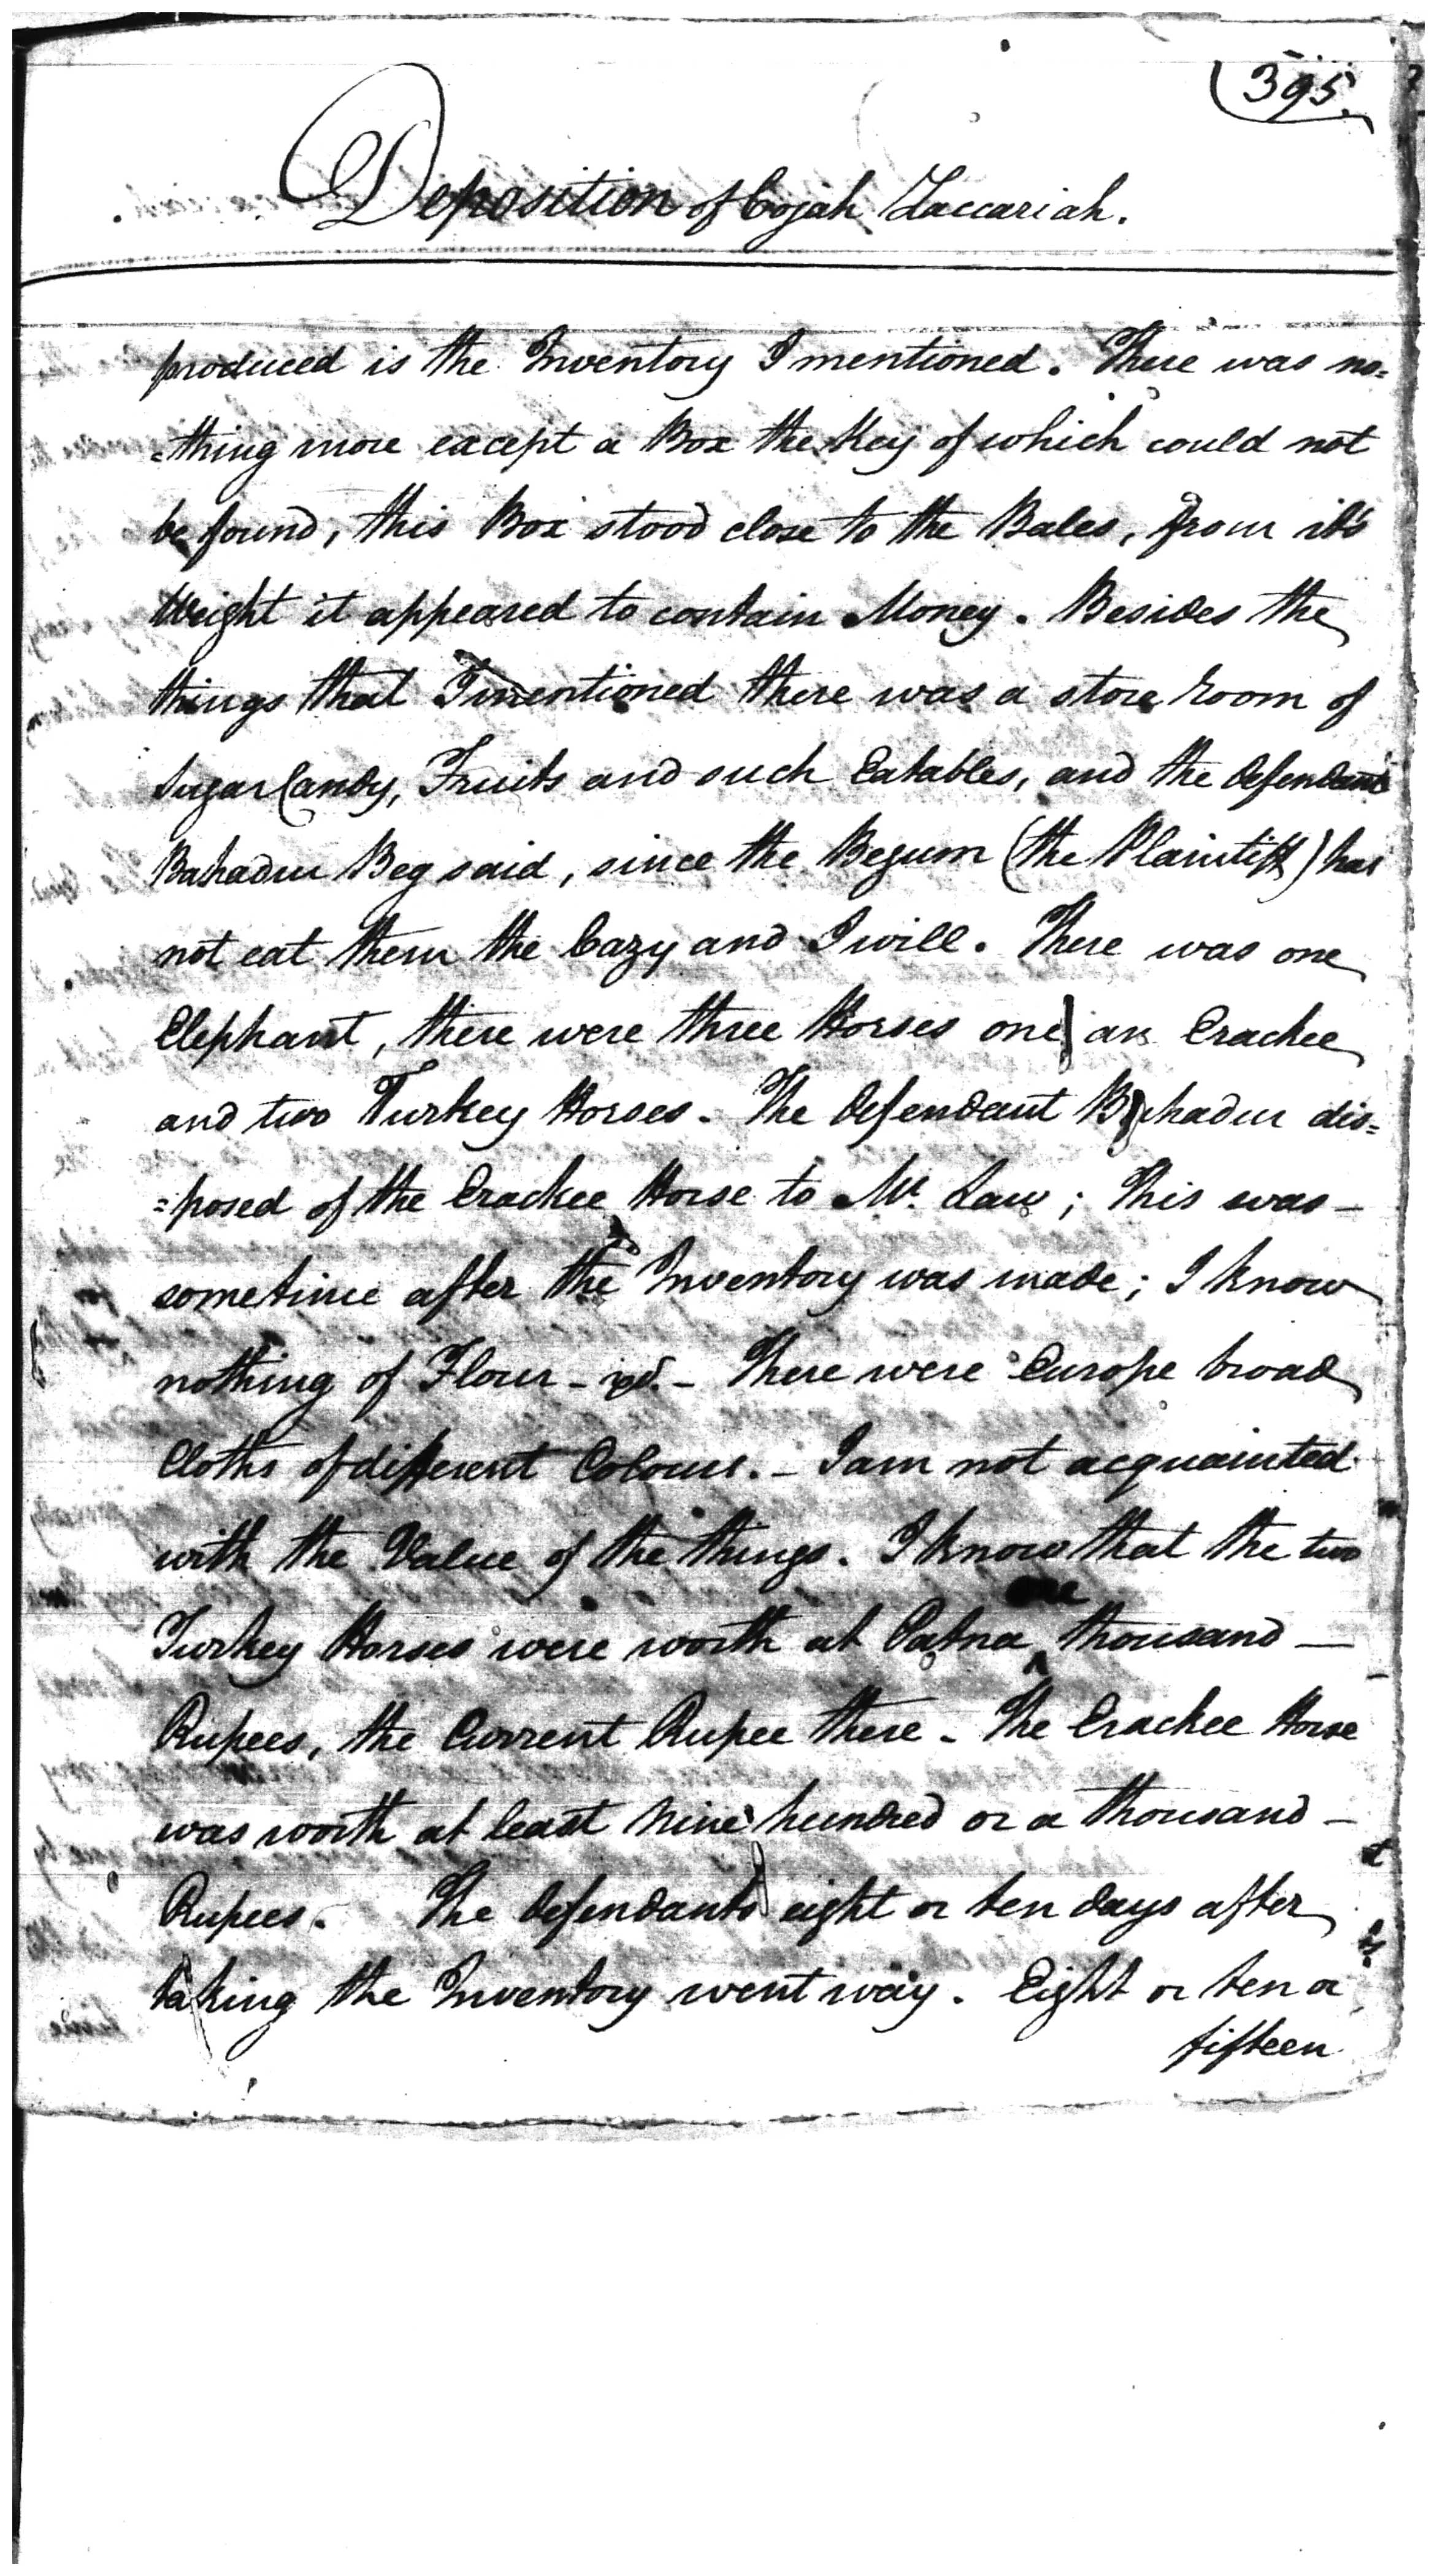 395.
Deposition of Cojah Zaccariah.
produced is the Inventory I mentioned. There was no=
=thing more except a Box the Key of which could not
be found, this Box stood close to the Bales, from it's
Weight it appeared to contain Money. Besides the
things that I mentioned there was a store room of
Sugar Candy, Fruits and such Eatables, and the defendant
Bahadur Beg said, since the Begum (the Plaintiff) has
not eat them the Cazy and I will. There was one
Elephant, there were three Horses one an Erackee
and two Turkey Horses. The defendant Bahadur dis=
=posed of the Erackee Horse to Mr. Law; This was —
sometime after the Inventory was made; I know
nothing of Flour - - There were Europe broad
Cloths of different Colours. - I am not acquainted
with the Value of the things. I know that the two
one
Turkey Horses were worth at Patna ^ thousand —
Rupees, the Current Rupee there - The Erackee Horse
was worth at least nine hundred or a thousand —
Rupees. The defendants eight or ten days after
taking the Inventory went way. Eight or ten or
fifteen